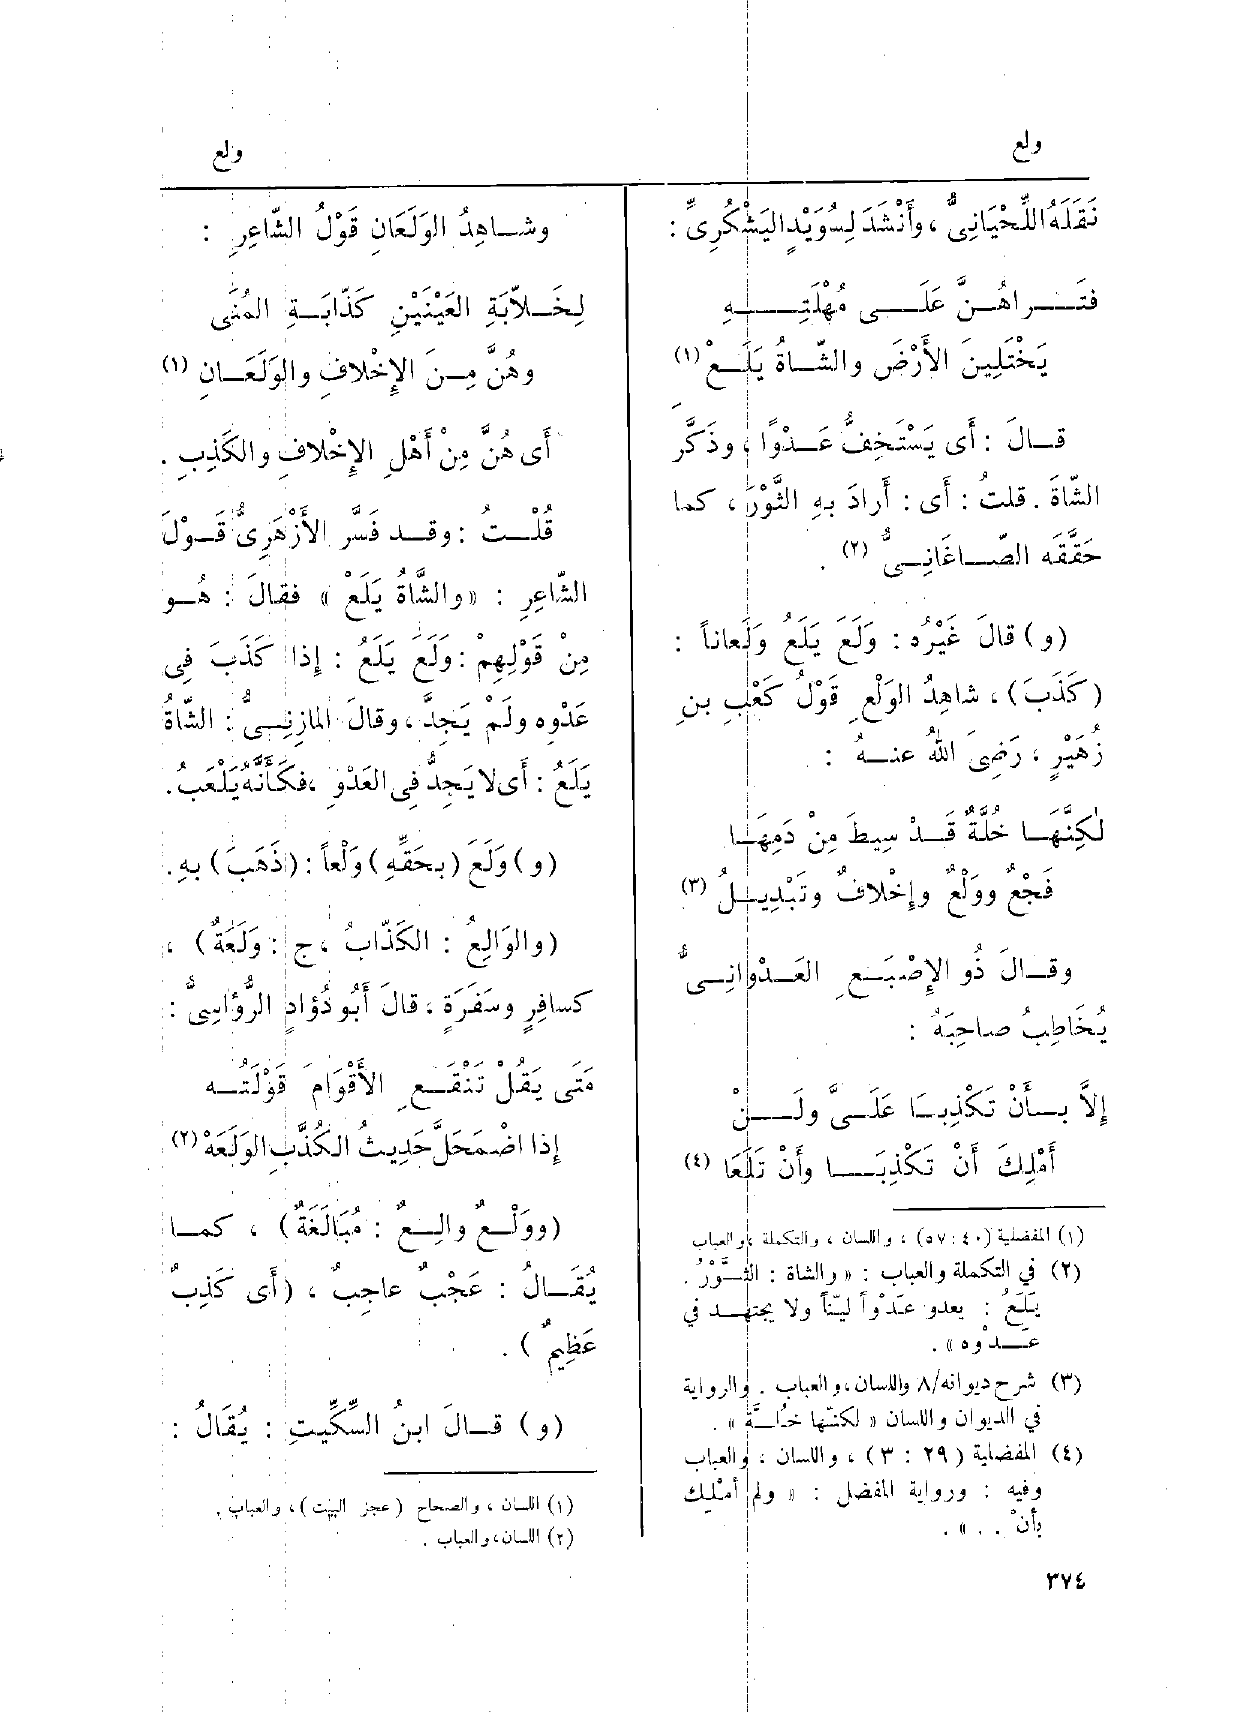 ولع
ولع
نَقَلَهُ اللِّحْيَانِىُّ ، وأَنْشَدَ لِسُوَيْدٍ اليَشْكُرِىِّ :
فتَــراهُــنَّ عَلَــى مُهْلَتِــهِ
يَخْتَلِينَ الأَرْضَ والشَّــاةُ يَلَــعْ (١)
قــالَ : أَى يَسْتَخِفُّ عَــدْوًا ، وذَكَّرَ
الشَّاةَ . قلتُ : أَى : أَرادَ بهِ الثَّوْرَ ، كما
حَقَّقَه الصَّــاغَانِــىُّ (٢) .
(و) قالَ غَيْرُه : وَلَعَ يَلَعُ وَلَعاناً :
(كَذَبَ) ، شاهِدُ الوَلْعِ قَوْلُ كَعْبِ بنِ
زُهَيْرٍ ، رَضِىَ اللهُ عنــهُ :
لٰكِنَّهَــا خُلَّةٌ قَــدْ سِيطَ مِنْ دَمِهَــا
فَجْعٌ ووَلْعٌ وإِخْلافٌ وتَبْدِيــلُ (٣)
وقــالَ ذُو الإِصْبَــعِ العَــدْوانِــىُّ
يُخَاطِبُ صاحِبَهُ :
إِلاَّ بــأَنْ تَكْذِبــَا عَلَــىَّ ولَــنْ
أَمْلِكَ أَنْ تَكْذِبَــــا وأَنْ تَلَعَا (٤)
(١) المفضلية (٤٠ : ٥٧) ، واللسان ، والتكملة ، والعباب
(٢) في التكملة والعباب : « والشاة : الثَّــوْرُ .
يَلَعُ : يعدو عَدْواً ليّناً ولا يجتهــد في
عَــدْوه » .
(٣) شرح ديوانه/٨ واللسان ، والعباب . والرواية
في الديوان واللسان « لكنّها خُلَّــةٌ » .
(٤) المفضلية (٢٩ : ٣) ، واللسان ، والعباب
وفيه : ورواية المفضل : « ولم أمْلِك
بأنْ . . » .
٣٧٤
وشــاهِدُ الوَلَعَانِ قَوْلُ الشّاعِرِ :
لِخَــلاَّبَةِ العَيْنَيْنِ كَذّابَــةِ المُنَى
وهُنَّ مِــنَ الإِخْلافِ والوَلَعَــانِ (١)
أَى هُنَّ مِنْ أَهْلِ الإِخْلافِ والكَذِبِ .
قُلْــتُ : وقــد فَسَّرَ الأَزْهَرِىُّ قَــوْلَ
الشّاعِرِ : « والشَّاةُ يَلَعْ » فقالَ : هُــو
مِنْ قَوْلِهِمْ : وَلَعَ يَلَعُ : إِذا كَذَبَ فِى
عَدْوِه ولَمْ يَجِدَّ ، وقالَ المازِنِــىُّ : الشّاةُ
يَلَعُ : أَى لا يَجِدُّ فِى العَدْوِ ، فكَأَنَّه يَلْعَبُ .
(و) وَلَعَ (بحَقِّهِ) وَلْعاً : (ذَهَبَ) بهِ .
(والوَالِعُ : الكَذّابُ ، ج : وَلَعَةٌ) ،
كسافِرٍ وسَفَرَةٍ ، قالَ أَبُو دُوَّادٍ الرُّؤَاسِىُّ :
مَتَى يَقُلْ تَنْقَــعِ الأَقْوَامَ قَوْلَتُــه
إِذا اضْمَحَلَّ حَدِيثُ الكُذَّبِ الوَلَعَهْ (٢)
(ووَلْــعٌ والِــعٌ : مُبَالَغَةٌ) ، كمــا
يُقَــالُ : عَجْبٌ عاجِبٌ ، (أَى كَذِبٌ
عَظِيمٌ ) .
(و) قــالَ ابنُ السِّكِّيتِ : يُقَالُ :
(١) اللسان ، والصحاح (عجز البيت) ، والعباب .
(٢) اللسان ، والعباب .